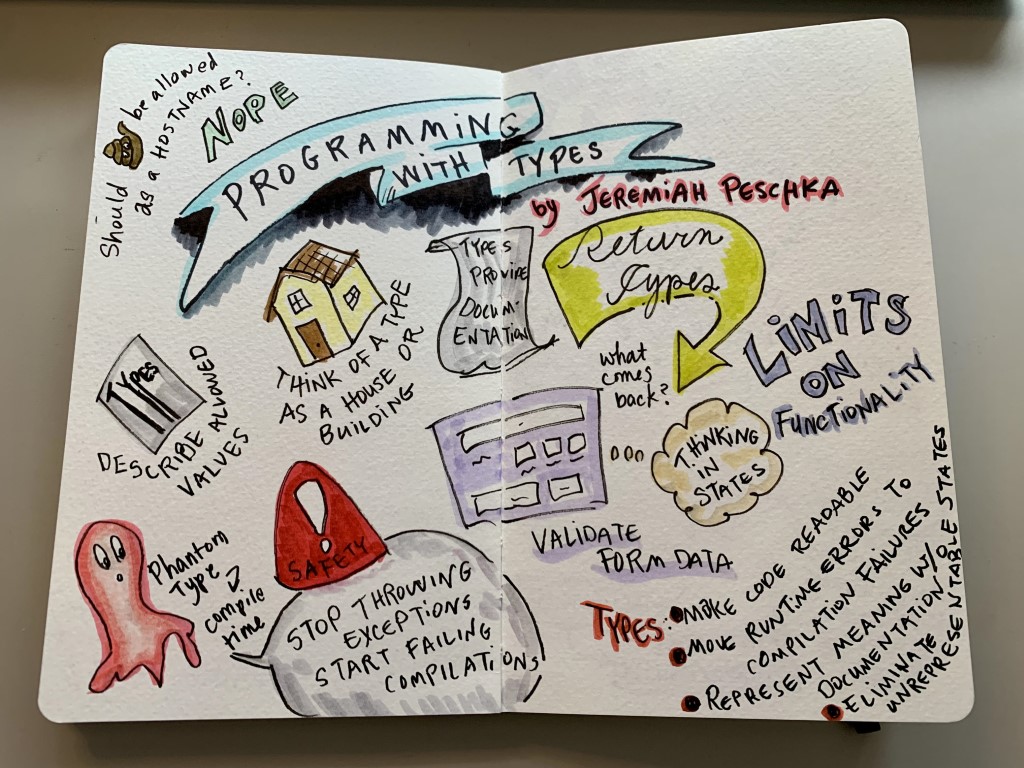 Should 💩 be allowed
as a HOSTNAME?
NOPE
PROGRAMMING
WITH TYPES
by JEREMIAH PESCHKA
TYPES
DESCRIBE ALLOWED
VALUES
THINK OF A TYPE
AS A HOUSE OR
BUILDING
TYPES
PROVIDE
DOCUM-
ENTATION
Return
Types
what
comes
back?
LIMITS
ON
FUNCTIONALITY
THINKING
IN
STATES
VALIDATE
FORM DATA
Phantom
Type
compile
time
SAFETY
STOP THROWING
EXCEPTIONS
START FAILING
COMPILATIONS
TYPES: • MAKE CODE READABLE
• MOVE RUNTIME ERRORS TO
COMPILATION FAILURES
• REPRESENT MEANING W/
DOCUMENTATION
• ELIMINATE
UNREPRESENTABLE STATES